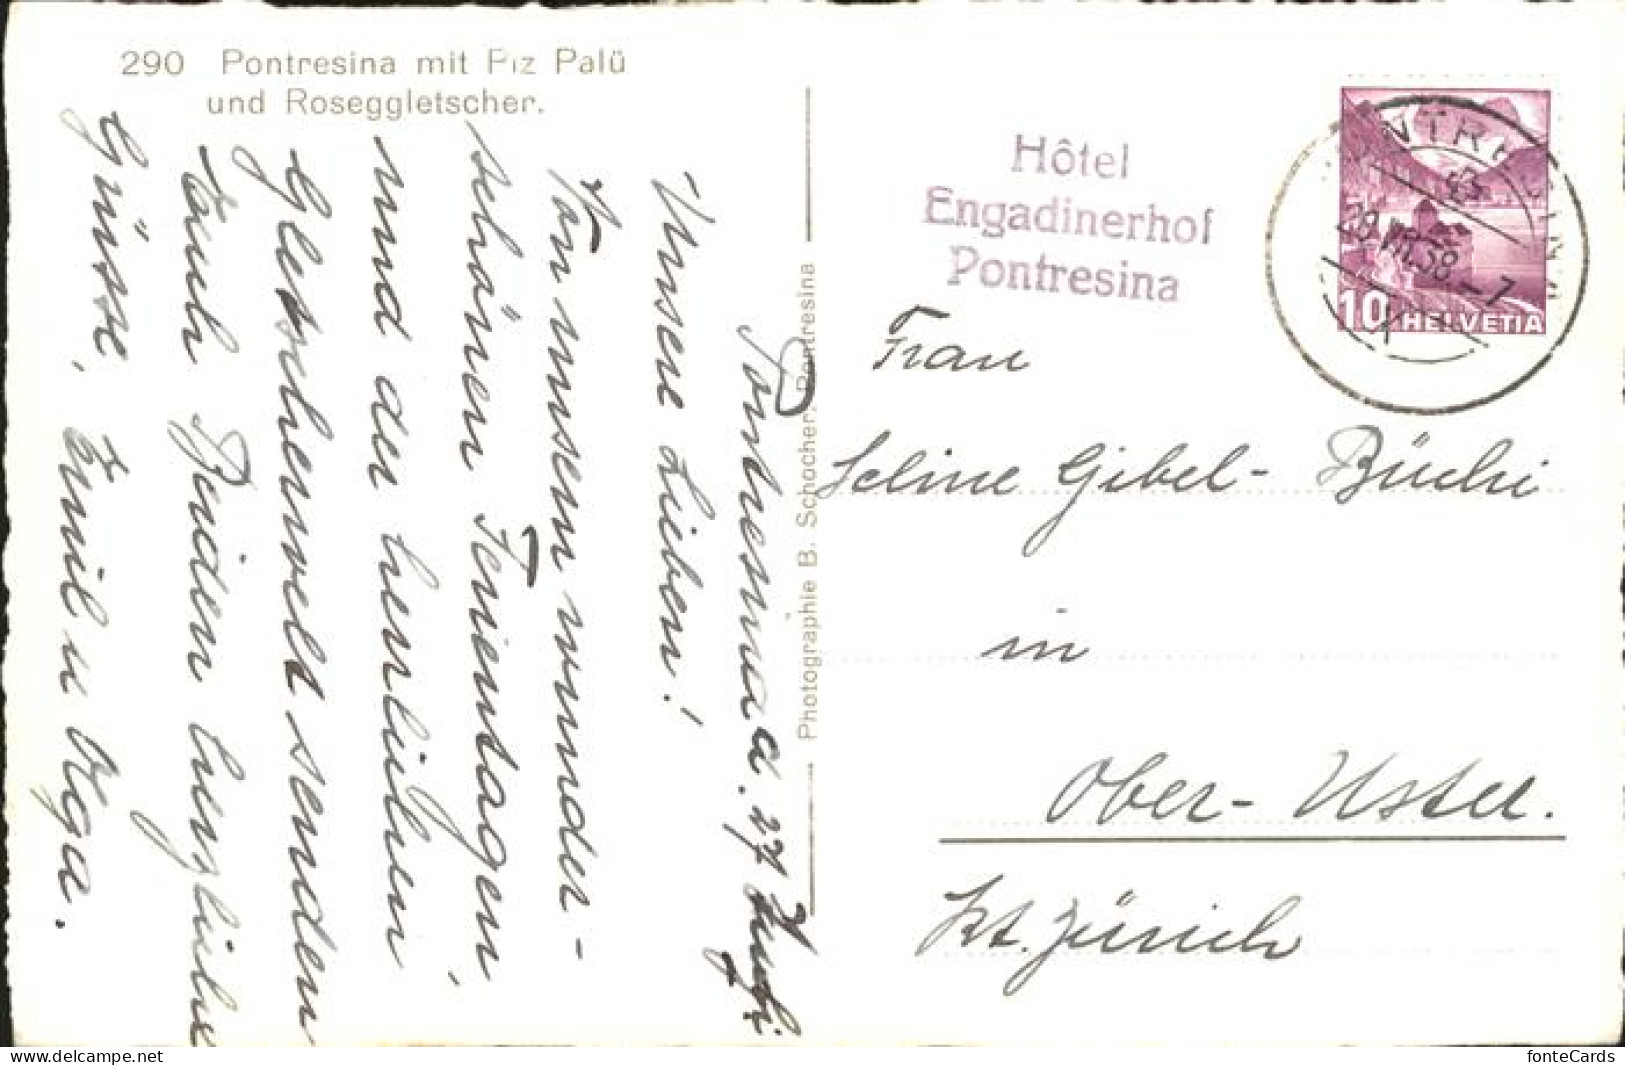 290 Pontresina mit Piz Palü
und Roseggletscher.
Pontresina d. 27 Juli
Unsere Lieben!
Von unsern wunder-
schönen Ferientagen
und der herrlichen
Gletscherwelt senden
Euch Beiden herzliche
Grüsse, Emil u Olga.
Photographie B. Schocher, Pontresina
Hôtel
Engadinerhof
Pontresina
PONTRESINA
28.VII.38.-7
10 HELVETIA
Frau
Seline Gibel-Büchi
in
Ober-Uster.
Kt. Zürich
delcampe.net
fonteCards